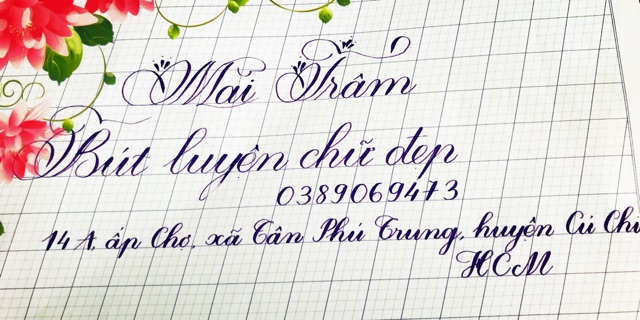 Mai Trâm
Bút luyện chữ đẹp
0389069473
14A, ấp Chợ, xã Tân Phú Trung, huyện Củ Chi
HCM